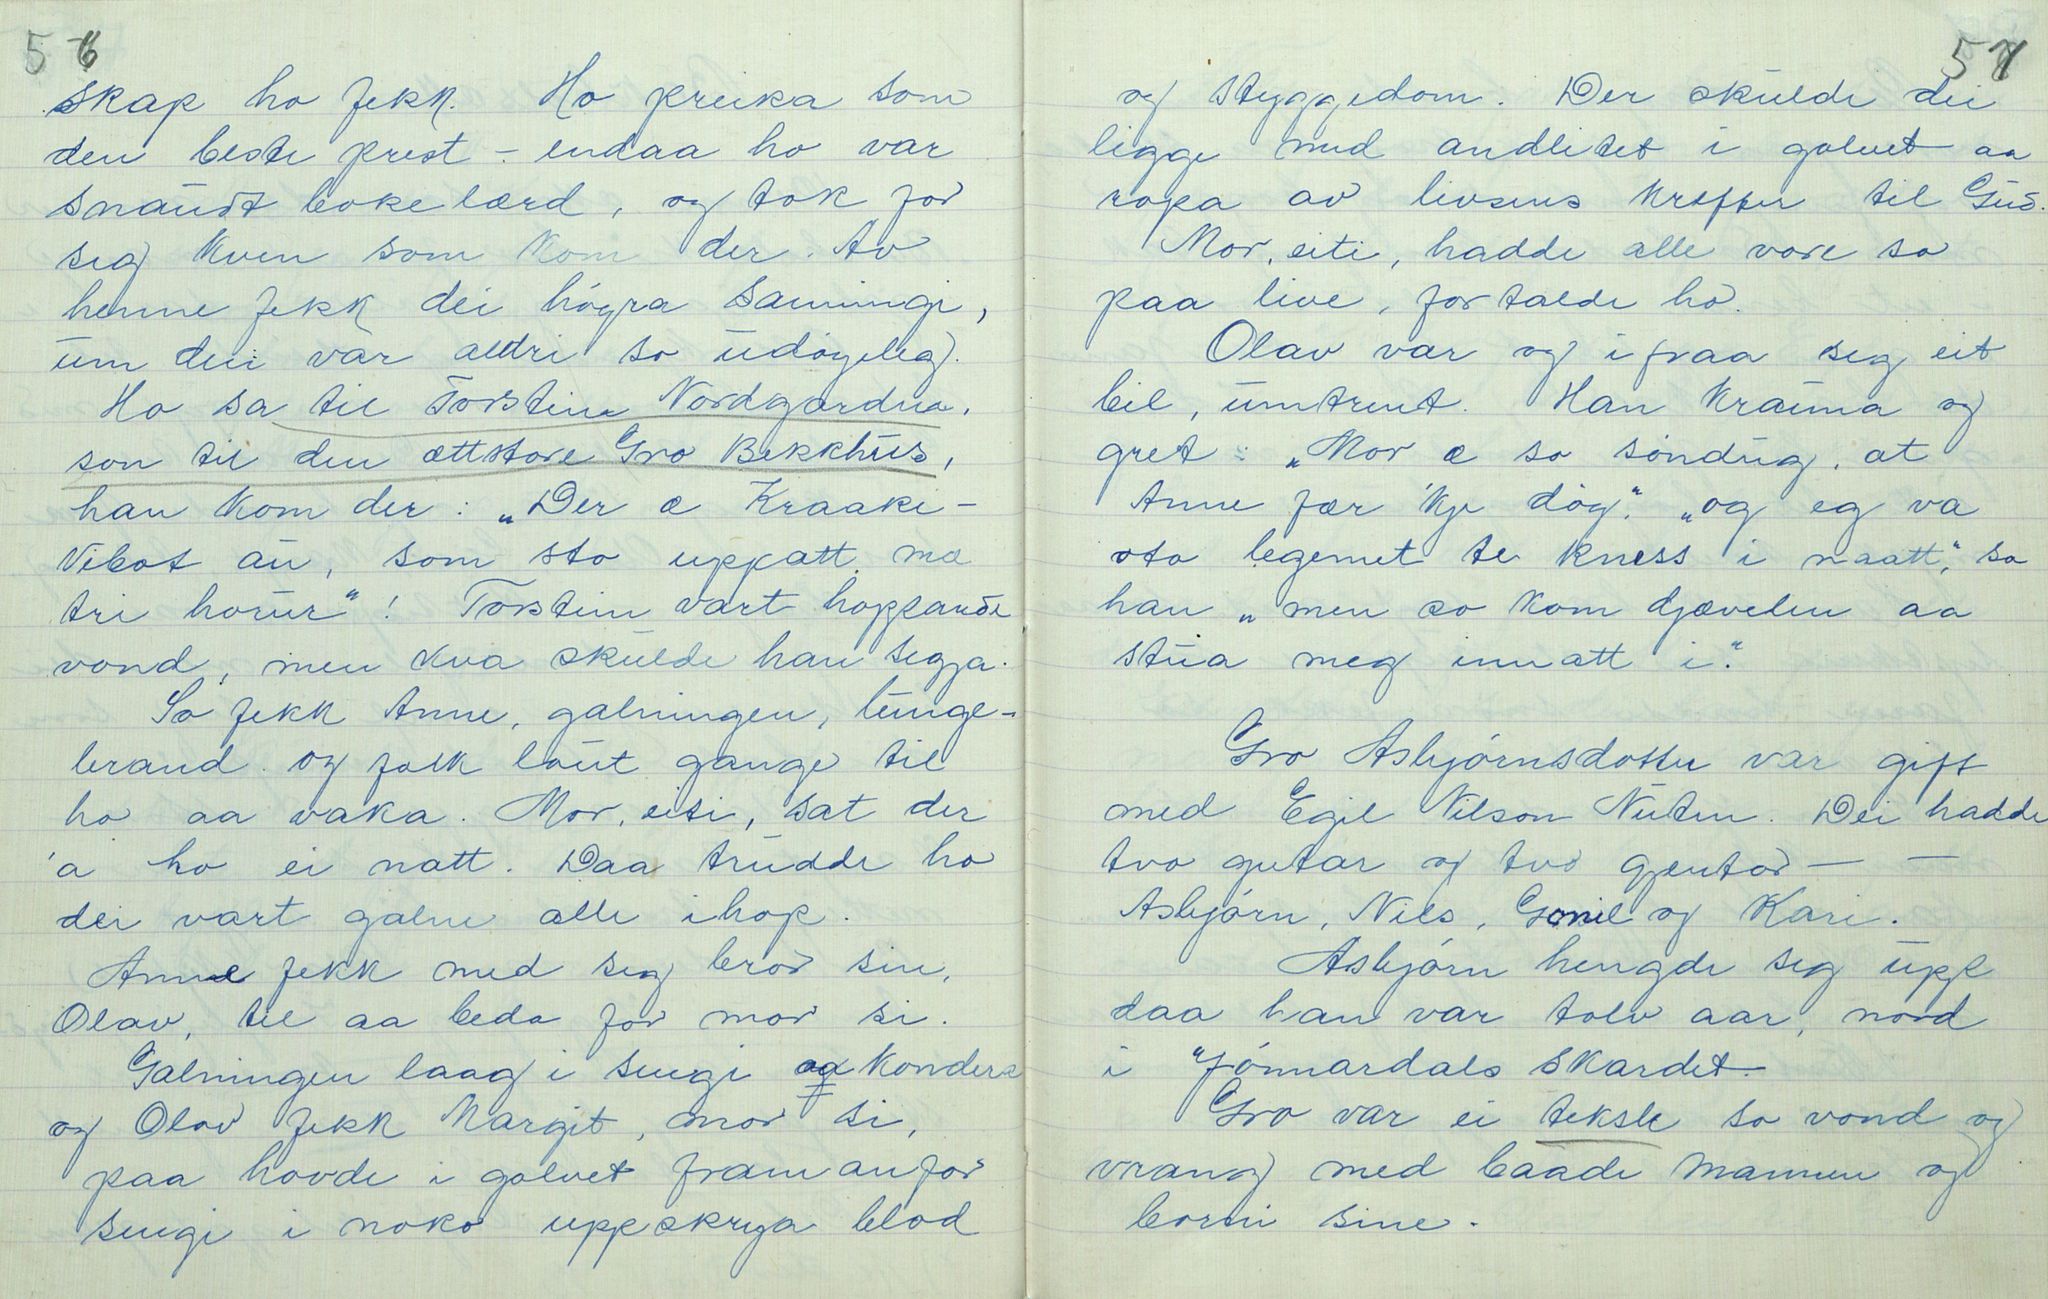 56
skap ho fekk. Ho preika som
den beste prest - endaa ho var
snaudt bokelærd, og tok for
seg kven som kom der. Av
henne fekk dei högra sanningi,
um dei var aldri so udögeleg.
Ho sa til Torstein Nordgarden,
son til den ættstore Gro Bekkhus,
han kom der: „Der æ Kraaki-
Vibot au, som sto uppatt mæ
tri horur"! Torstein vart hoppande
vond, men kva skulde han segja.
So fekk Anne, galningen, lunge-
brand og folk lout gange til
ho aa vaka. Mor, eiti, sat der
'a ho ei natt. Daa trudde ho
dei vart galne alle ihop.
Anne fekk med seg bror sin,
Olav, til aa beda for mor si.
Galningen laag i sengi og konders
og Olav fekk Margit, mor si,
paa hovde i golvet framanfor
sengi i noko uppskrya blod
57
og styggedom. Der skulde dei
ligge med andletet i golvet aa
ropa av livsens krefter til Gud.
Mor, eiti, hadde alle vore so
paa live, fortalde ho.
Olav var og ifraa seg eit
bil, umtrent. Han krauma og
gret: „Mor æ so söndug, at
Anne fær 'kje döy". „og eg va
oto legemet te kness i naatt", sa
han „men so kom djævelen aa
stua meg innatt i."
Gro Asbjörnsdotter var gift
med Egil Nilson Nuten. Dei hadde
tvo gutar og tvo gjentor — —
Asbjörn, Nils, Gonil og Kari.
Asbjörn hengde seg upp
daa han var tolv aar, nord
i "Jönnardals skardet.
Gro var ei teksle so vond og
vrang med baade mannen og
borni sine.